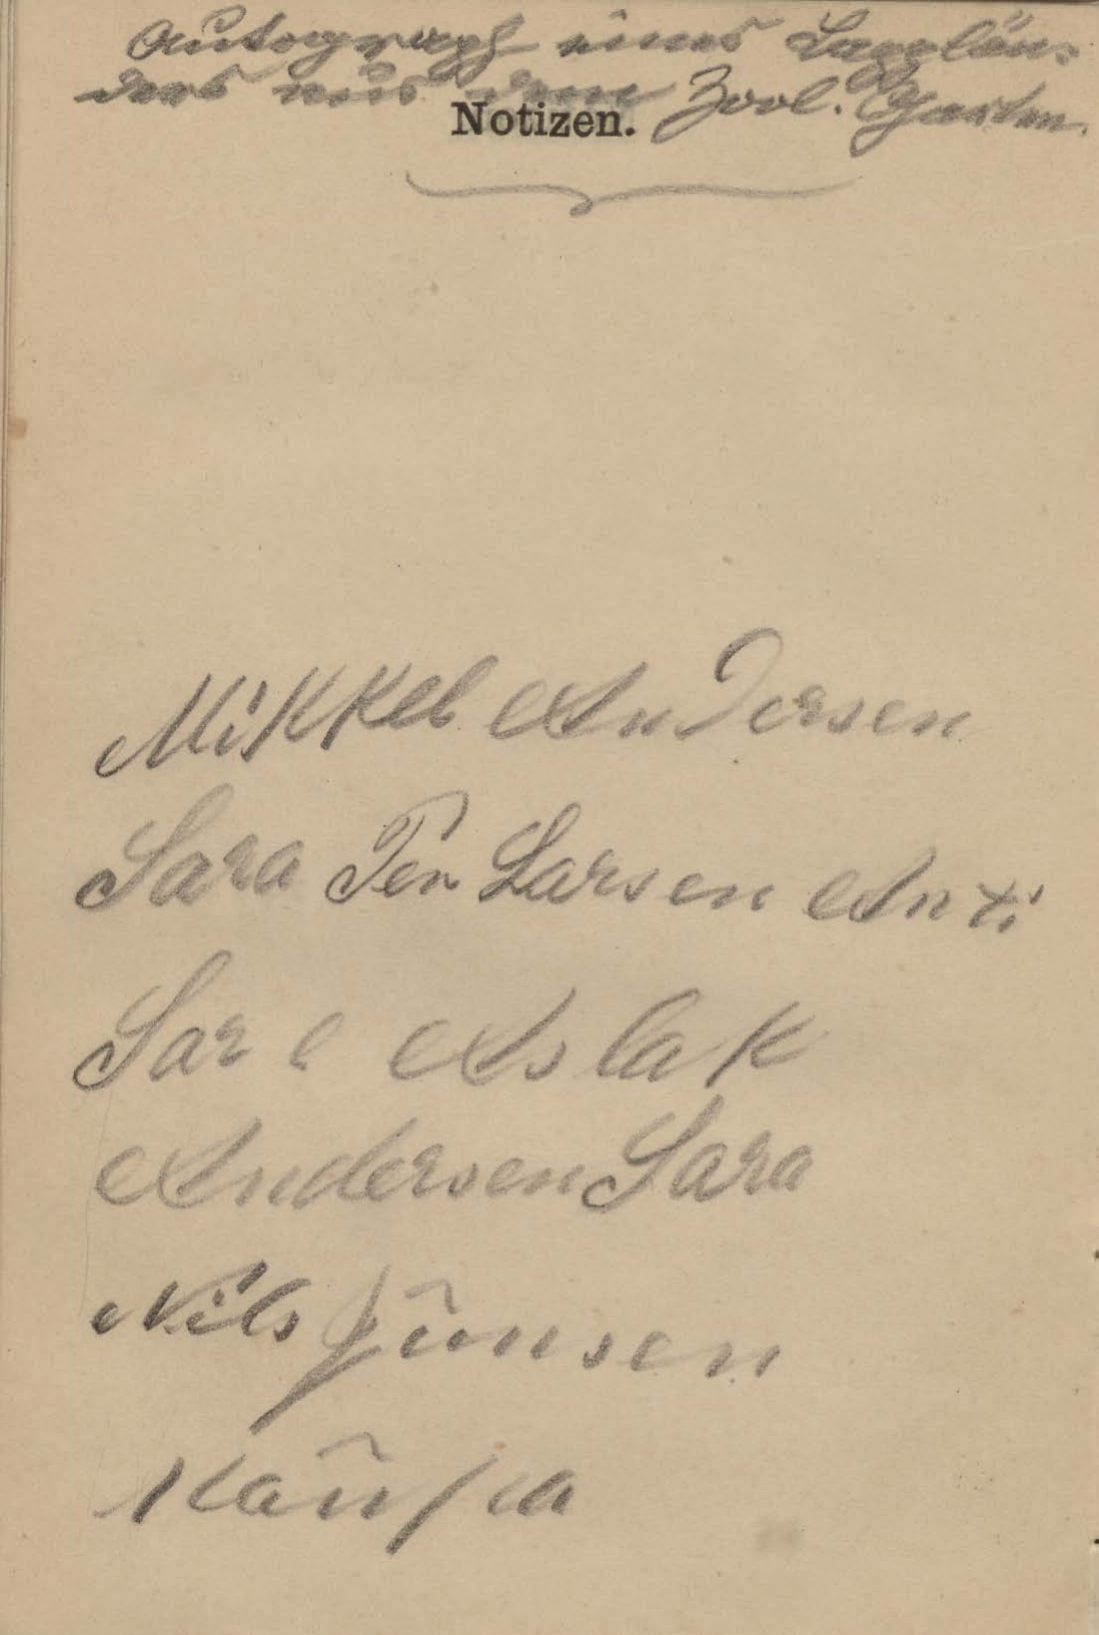 Autograph eines Lapplän-
ders aus dem Zool. Garten.
Notizen.
Mikkel Andersen
Sara Per Larsen Anti
Sar e Aslak
Andersen Sara
Nils